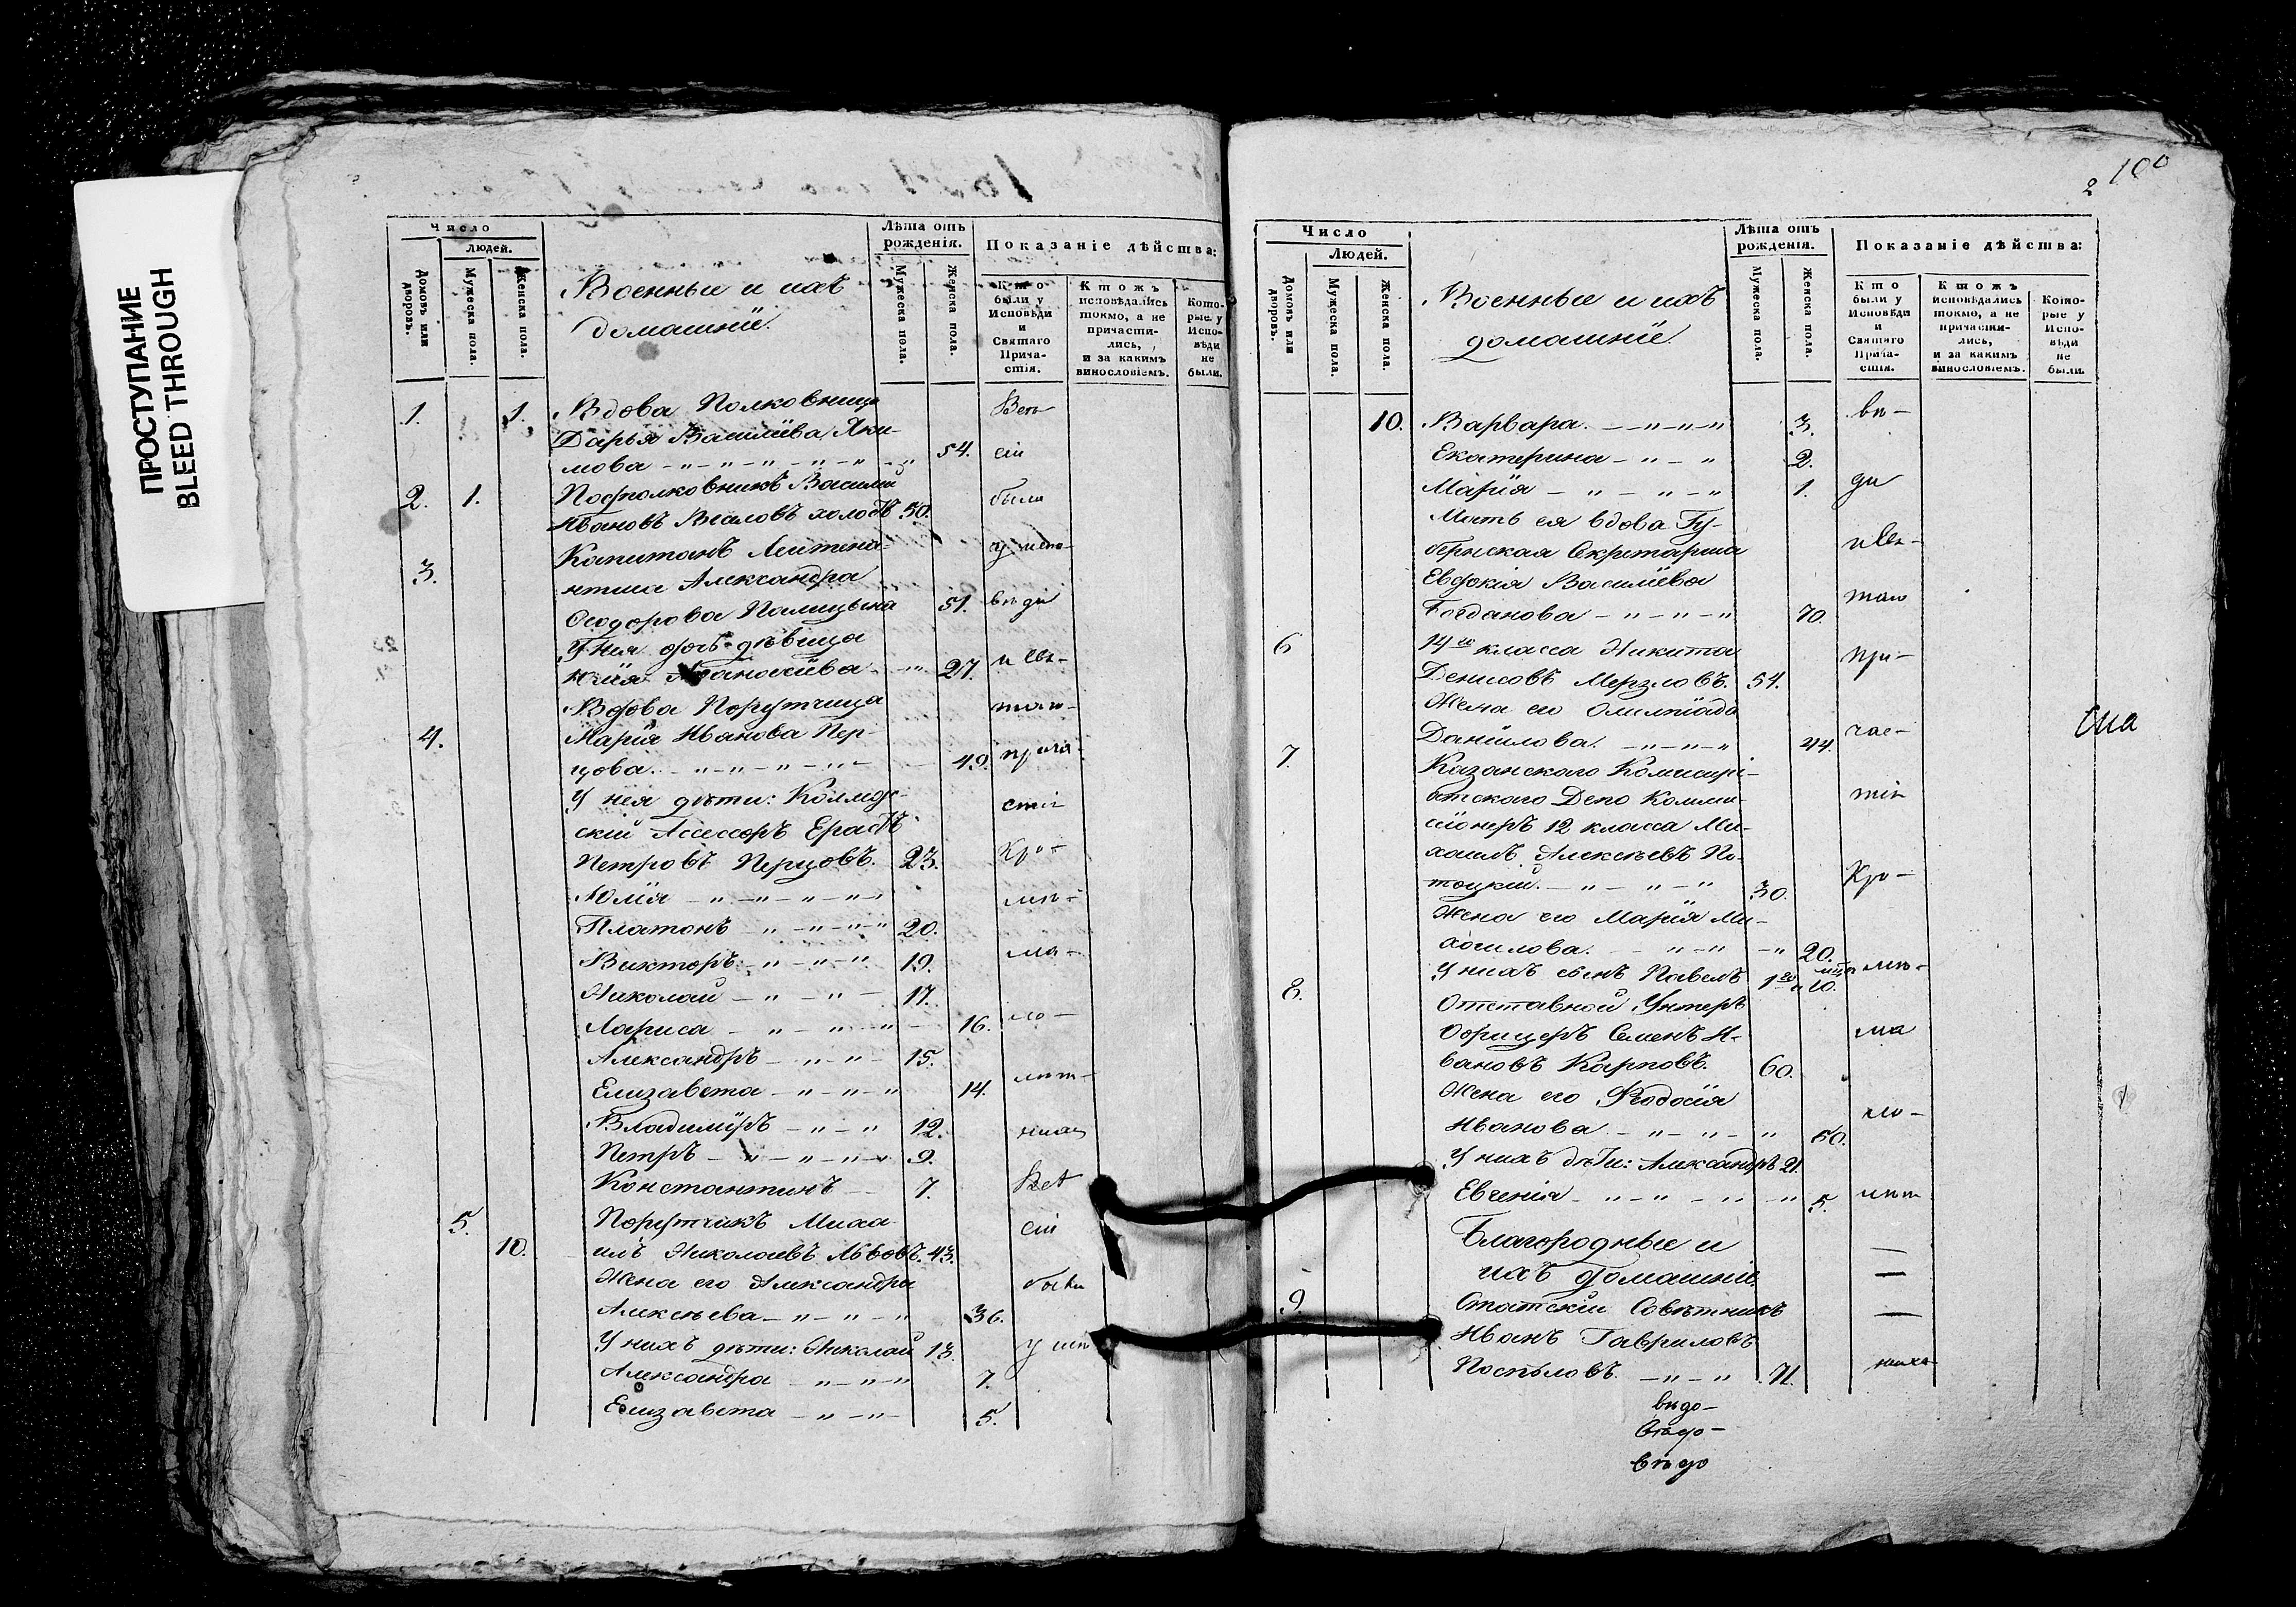 ПРОСТУПАНИЕ
BLEED THROUGH
Число
людей.
Домовъ или дворовъ.
Мужеска пола.
Женска пола.
Военные и ихъ
домашніе.
Лѣта отъ рожденія.
Мужеска пола.
Женска пола.
Показаніе дѣйства:
Кто были у Исповѣди и Святаго Причастія.
Ктожъ исповѣдались токмо, а не причастились, и за какимъ винословіемъ.
Которые у Исповѣди не были.
1. 1. Вдова Полковница
Дарья Васильева Яки-
мова 54.
2. 1. Подполковникъ Василий
Ивановъ холостъ 50.
Капитанъ Лейтена-
3. нтша Александра
Феодорова Палицына 51.
У нея дочь дѣвица
Юлія 27.
Вдова Порутчица
4. Марія Иванова Пер-
цова 49.
У нея дѣти: Коллеж-
скій Ассессоръ Ерастъ
Петровъ Перцовъ. 23.
Юлія
Платонъ 20.
Викторъ 19.
Николай 17.
Лариса 16.
Александръ 15.
Елизавета 14.
Владиміръ 12.
Петръ 9.
Константинъ 7.
5. Порутчикъ Миха-
10. илъ Николаевъ Львовъ. 43.
Жена его Александра
Алексѣева 36.
У нихъ дѣти: Николай 13.
Александра 7.
Елизавета 5.
Всѣ
сіи
были
у испо-
вѣди
и свя-
таго
прича-
стія
Кро-
мѣ
ма-
ло-
лѣт-
нихъ
Всѣ
сіи
были
у испо
2 100
Число
Людей.
Домовъ или дворовъ.
Мужеска пола.
Женска пола.
Военные и ихъ
домашніе.
Лѣта отъ рожденія.
Мужеска пола.
Женска пола.
Показаніе дѣйства:
Кто были у Исповѣди и Святаго Причастія.
Ктожъ исповѣдались токмо, а не причастились, и за какимъ винословіемъ.
Которые у Исповѣди не были.
10. Варвара. 3.
Екатерина 2.
Марія 1.
Мать ея вдова Гу-
бернская Секретарша
Евдокія Васильева
Богданова 70.
6 14го класса Никита
Денисовъ Мерзловъ. 54.
Жена его Олимпіада
Данилова. 44.
7. Казанскаго Комисарі-
атскаго Депо Комми-
сіонеръ 12 класса Ми-
хаилъ Алексѣевъ По-
тоцкій. 30.
Жена его Марія Ми-
хаилова. 20.
У нихъ сынъ Павелъ 1го
8. Отставной Унтеръ
Офицеръ Семенъ И-
вановъ Карповъ. 60.
Жена его Феодосія
Иванова 50.
У нихъ дѣти: Александръ 21.
Евгенія 5.
Благородные и
ихъ домашніе.
9. Статскій Совѣтникъ
Иванъ Гавриловъ
Поспѣловъ 71.
вѣ-
ди
и Свя-
таго
при-
час-
тія
Кро-
мѣ-
ма
ло-
лѣт
нихъ
вѣдо-
вѣдо-
вѣдо